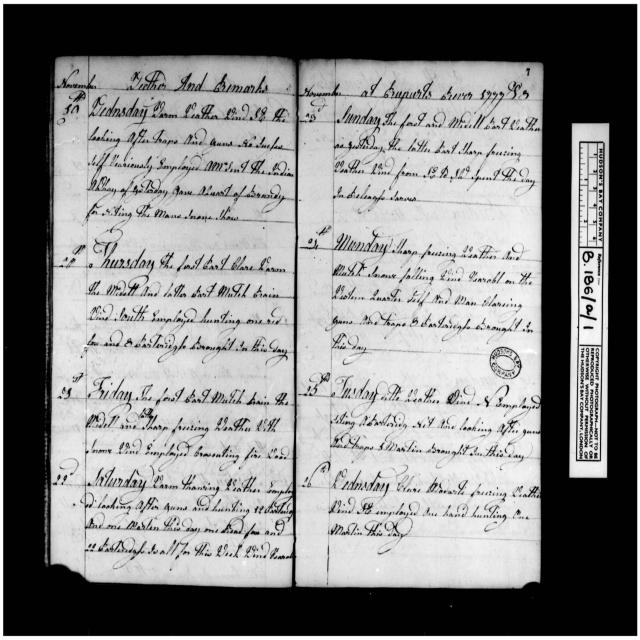 November Wether And Remarks
19th Wednsday Warm Weather Wind SE the
looking After Traps And Guns
Self Variously Employed sent the Indian
Away of yesterday Gave Quart of Brandy
for the Mans Snow Show
20th Thursday the first Part Clare Warm
the Midell And latter Part Mutch Rain
Wind South Employed hunting one red
fox and 8 Partridgls Brought In this day
21st Friday The first Part Mutch Rain the
Midell and Sharp freezing Weather With
Snow Wind Employed fire Wood
22d Saturday Warm thawing Weather Employ
d looking After guns and hunting 12 Partridgls
And one Martin this day one Read fox and
22 Partridgls In all for this Week Wind
7
November at Ruparts River 1777
23d Sunday The first and Midell Part Weather
as yesterday the latter Part Sharp freezing
Weather Wind from to Spent the day
In
24th Monday Sharp freezing Weather And
Snow falling Wind on the
Quarter Self And Man Clearing
guns And traps 3 Partridgls Brought In
this day
25th Tusday ditto Weather Wind N Employed
A Partridg Nit And looking After guns
And traps 1 Martin Brought In this day
26th Wednsday Clare freezing Weather
Wind employed One hand hunting One
Martin this day
HUDSON'S BAY COMPANY
Reference:—
B.186/a/1
COPYRIGHT PHOTOGRAPH—NOT TO BE
REPRODUCED PHOTOGRAPHICALLY OR
OTHERWISE WITHOUT PERMISSION OF
THE HUDSON'S BAY COMPANY, LONDON
HUDSON'S BAY
COMPANY